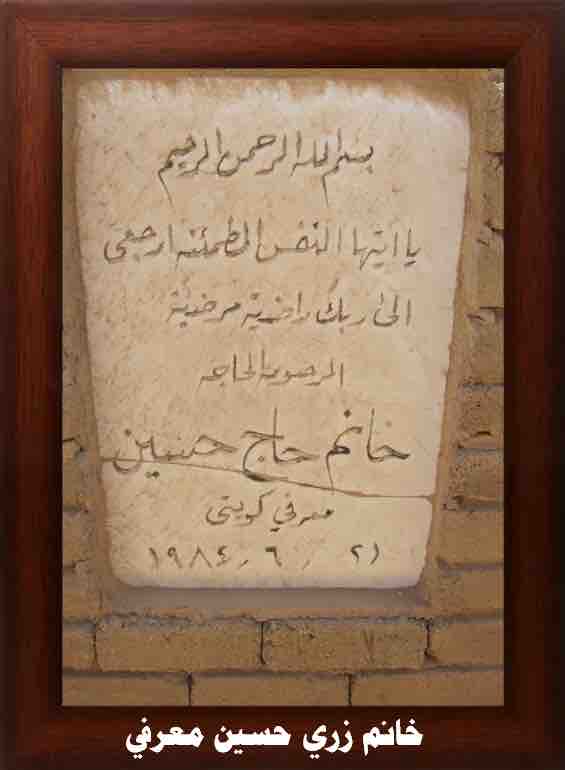 بسم الله الرحمن الرحيم
يا ايتها النفس المطمئنه ارجعي
الى ربك راضية مرضية
المرحومه الحاجه
خانم حاج حسين
معرفي كويتي
٢١ ٬ ٦ ٬ ١٩٨٤
خانم زري حسين معرفي